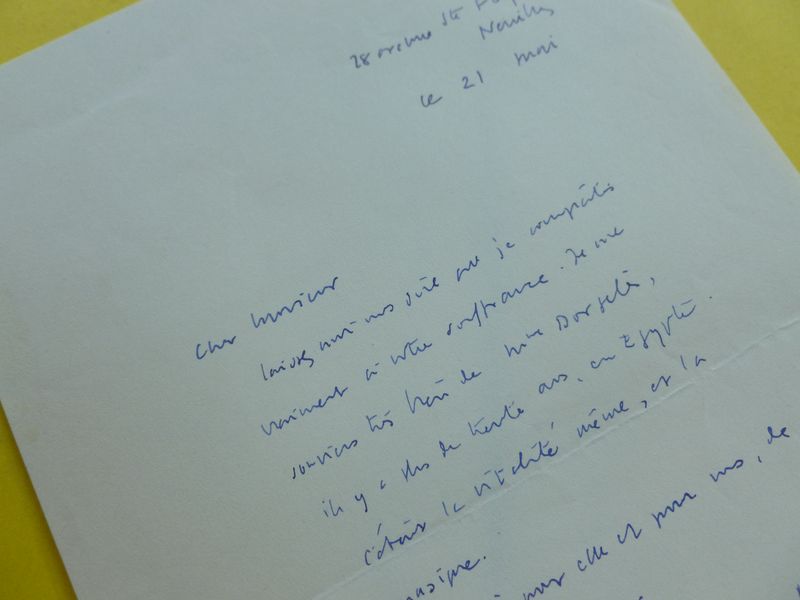 28 avenue Ste
Neuilly
le 21 mai
Cher Monsieur
laissez moi vous dire que je compatis
vraiment à votre souffrance. Je me
souviens très bien de Mme
il y a plus de trente ans, en Egypte.
C'était la vitalité même, et la
musique.
pour elle et pour vous, de